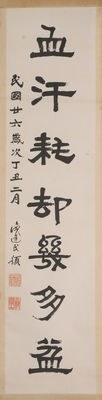 血汗耗却幾多益
民國廿六歲次丁丑二月